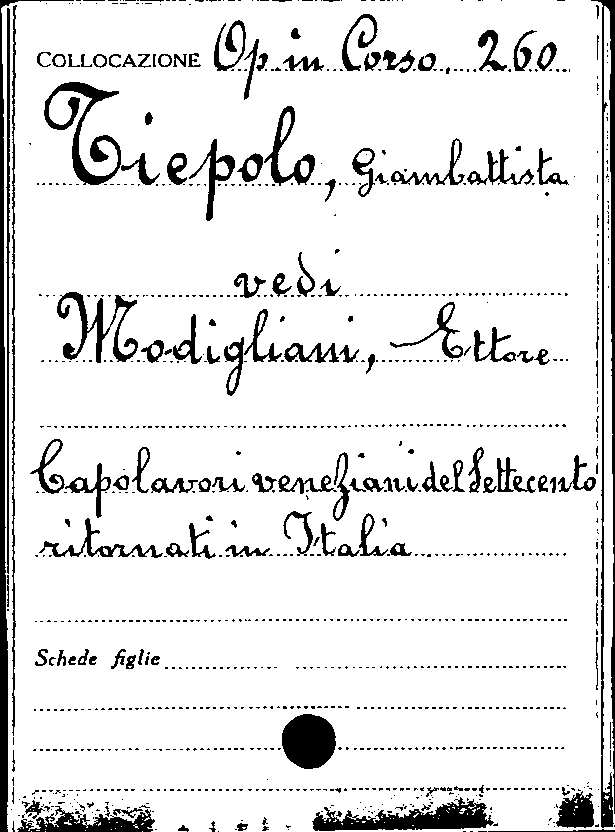 COLLOCAZIONE Op. in Corso. 260
Tiepolo, Giambattista
vedi
Modigliani, Ettore
Capolavori veneziani del Settecento
ritornati in Italia
Schede figlie